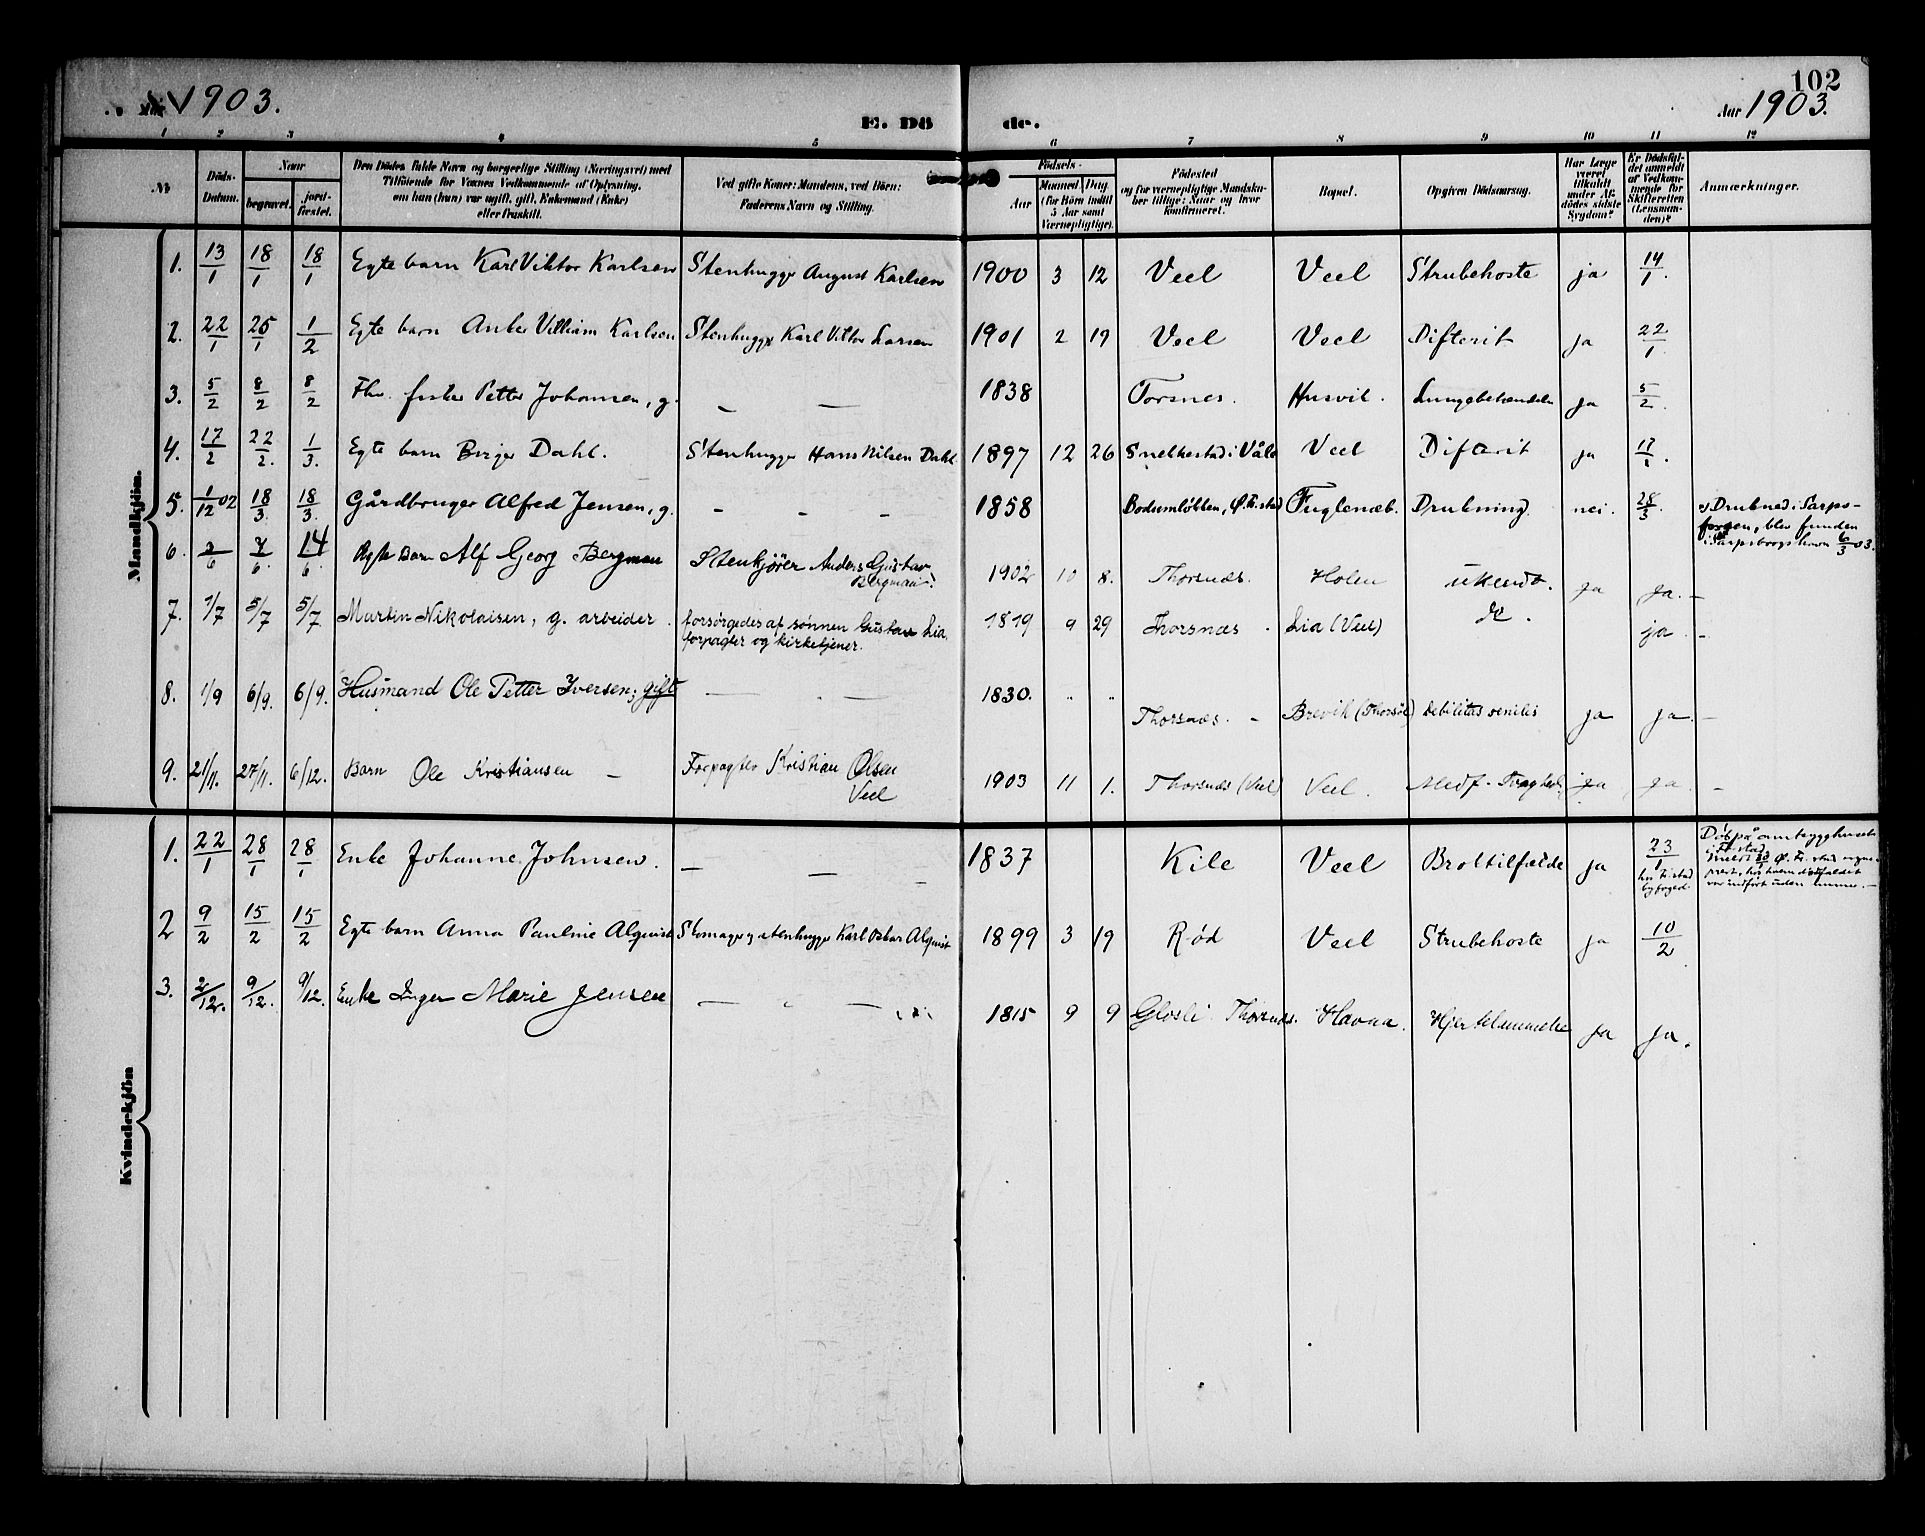 Aar 1903.
E. Dö
de.
102
Aar 1903.
1 2 3 4 5 6 7 8 9 10 11 12
№
Döds-
Datum.
Naar
begravet.
jord-
fæstet.
Den Dödes fulde Navn og borgerlige Stilling (Næringsvei) med
Tilföiende for Voxnes Vedkommende af Oplysning,
om han (hun) var ugift, gift, Enkemand (Enke)
eller fraskilt.
Ved gifte Koner: Mandens, ved Börn:
Faderens Navn og Stilling.
Födsels-
Aar
Maaned Dag
(for Börn indtil
5 Aar samt
Værnepligtige).
Födested
og for værnepligtige Mandskaber tillige: Naar og hvor
konfirmeret.
Bopæl.
Opgiven Dödsaarsag.
Har Læge
været
tilkaldt
under Afdödes sidste
Sygdom?
Er Dödsfaldet anmeldt
af Vedkommende for
Skifteretten
(Lensmanden)?
Anmærkninger.
Mandkjön.
1. 13/1 18/1 18/1 Egte barn Karl Viktor Karlsen Stenhugger August Karlsen 1900 3 12 Veel Veel Strubehoste ja 14/1.
2. 22/1 25/1 1/2 Egte barn Anker Villiam Karlsen Stenhugger Karl Viktor Larsen 1901 2 19 Veel Veel Difterit ja 22/1.
3. 5/2 8/2 8/2 Fhv. fisker Petter Johansen, g. — — 1838 Torsnes. Husvik. Lungebetændelse ja 5/2.
4. 17/2 22/2. 1/3. Egte barn Birger Dahl. Stenhugger Hans Nilsen Dahl 1897 12 26 Snekkestad i Våle Veel Difterit ja
5. 1/12 02 18/3. 18/3. Gårdbruger Alfred Jensen, g. — — — 1858 Fuglenæb. Drukning. nei. 28/3.
Drukned i Sarpsfossen, blev funden
i Sarpsborgs havn 6/3 03.
6. 14/6 Egte Barn Alf Georg Bergman Stenkjörer Anders Gustav
Bergman. 1902 10 8. Thorsnæs. Holen ukendt. ja ja. —
7. 1/7 5/7 5/7 Martin Nikolaisen, g. arbeider. forsørgedes af sønnen Gustav Lia,
forpagter og kirketjener. 1819 9 29 Thorsnæs. Lia (Veel) do. ja. —
8. 1/9 6/9. 6/9. Husmand Ole Petter Iversen; gift — — 1830. " " Thorsnæs. — Brevik (Thorsö) debilitas senilis ja ja. —
9. 21/11. 27/11. 6/12. Barn Ole Kristiansen — Forpagter Kristian Olsen
Veel 1903 11 1. Thorsnæs (Veel) Veel. Medf. Svaghed ja ja. —
Kvindekjön
1. 22/1 28/1 28/1 Enke Johanne Johnsen. — — — 1837 Kile Veel Broktilfælde ja 23/1
Död på amtsygehuset
i Fr.stad
2 9/2 15/2 15/2 Egte barn Anna Pauline Alquist Skomager, stenhugger Karl Oskar Alquist 1899 3 19 Rød Veel Strubehoste ja 10/2
3. 2/12. 9/12. 9/12. Enke Inger Marie Jensen — — 1815 9 9 Glosli Thorsnæs. Havna. Hjertelammelse ja ja.